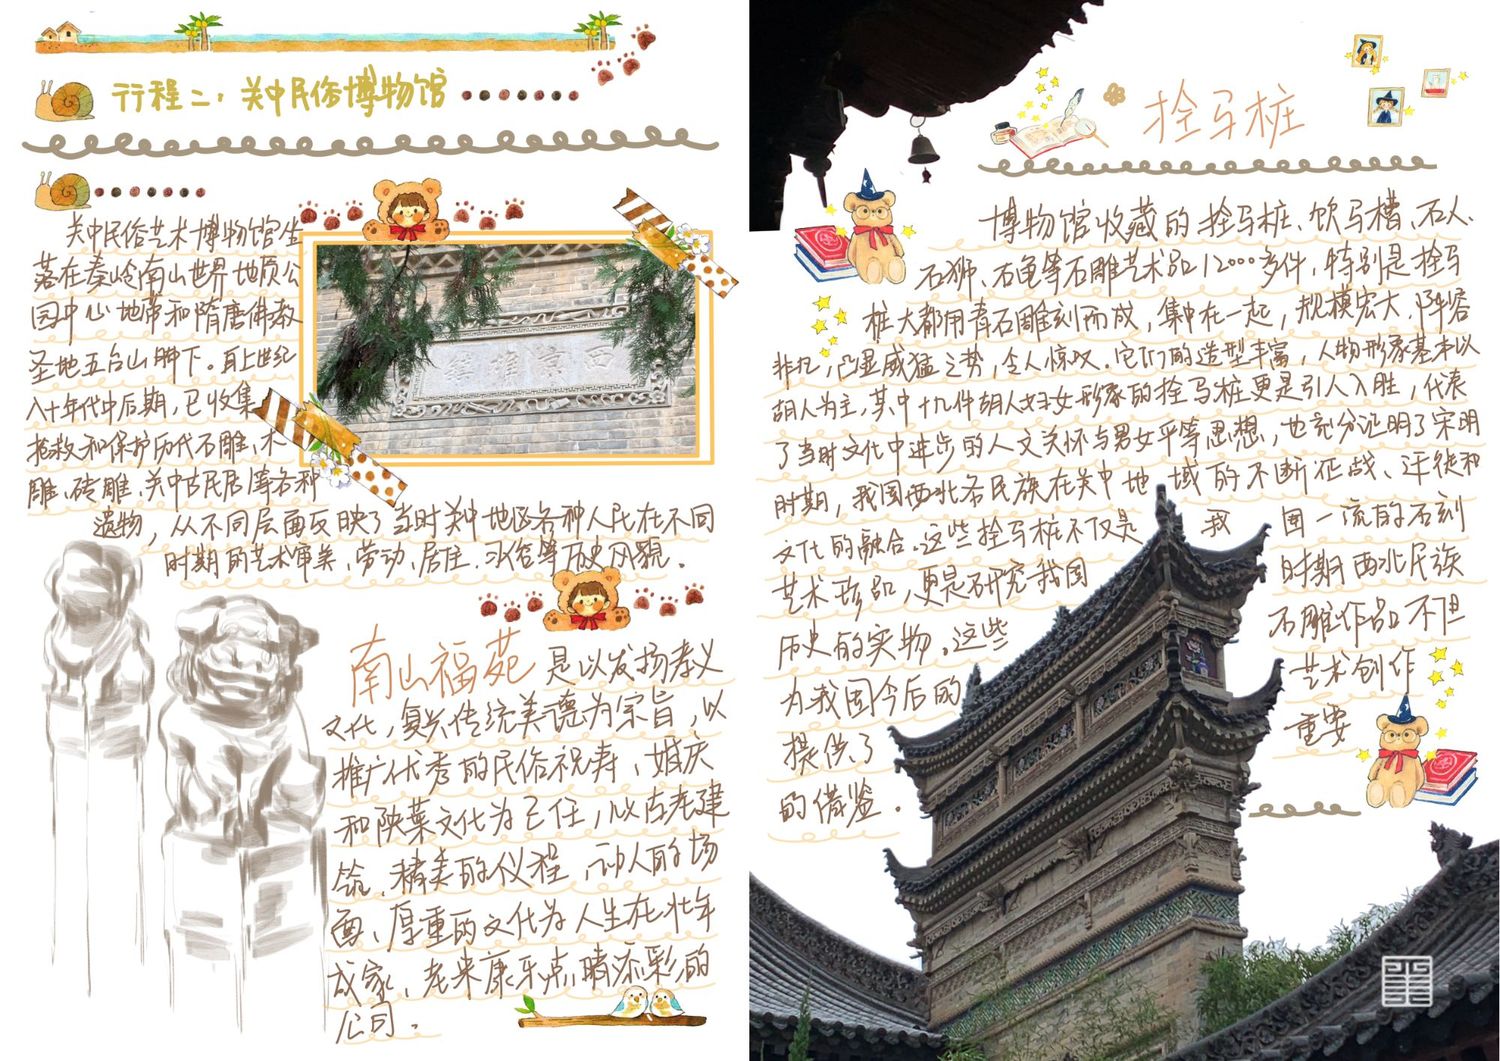 行程二：关中民俗博物馆
关中民俗艺术博物馆坐
落在秦岭南山世界地质公
园中心地带和隋唐佛教
圣地五台山脚下。自上世纪
八十年代中后期，已收集
抢救和保护历代石雕、木
雕、砖雕、关中古民居等各种
遗物，从不同层面反映了当时关中地区各种人民在不同
时期的艺术审美、劳动、居住、习俗等历史风貌。
南山福苑 是以发扬孝义
文化，复兴传统美德为宗旨，以
推广优秀的民俗祝寿、婚庆
和陕菜文化为己任，以古老建
筑、精美的仪程、动人的场
面、厚重的文化为人生在壮年
成家、老来康乐点睛添彩的
公司。
西京雄镇
拴马桩
博物馆收藏的拴马桩、饮马槽、石人、
石狮、石龟等石雕艺术品12000多件，特别是拴马
桩大都用青石雕刻而成，集中在一起，规模宏大，阵容
非凡，凸显威猛之势，令人惊叹。它们的造型丰富，人物形象基本以
胡人为主，其中十九件胡人妇女形象的拴马桩更是引人入胜，代表
了当时文化中进步的人文关怀与男女平等思想，也充分证明了宋明
时期，我国西北各民族在关中地域的不断征战、迁徙和
文化的融合。这些拴马桩不仅是我国一流的石刻
艺术珍品，更是研究我国时期西北民族
历史的实物。这些石雕作品不但
为我国今后的艺术创作
提供了重要
的借鉴。